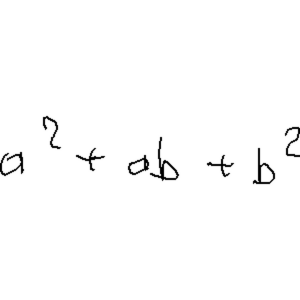 a² + ab + b²